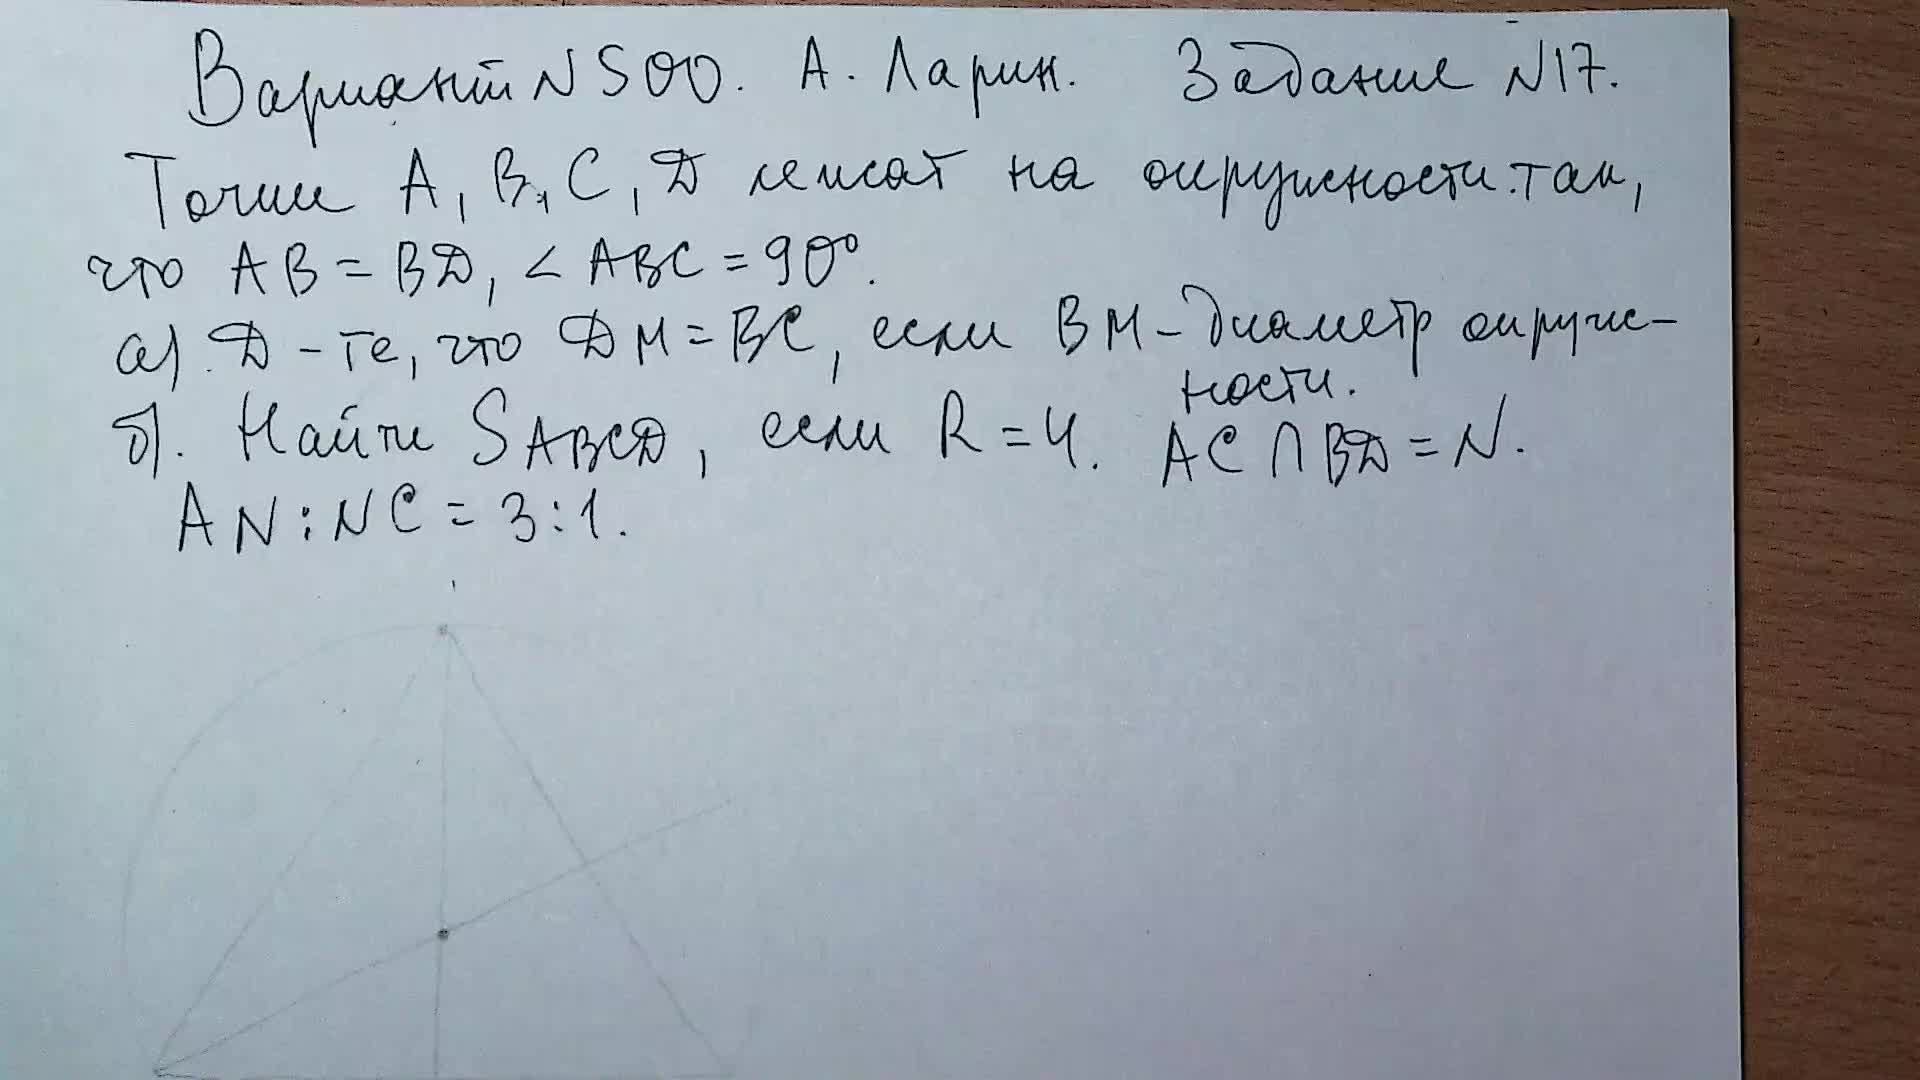 Вариант N 500. А. Ларин. Задание N17.
Точки A, B, C, D лежат на окружности так,
что AB = BD, ∠ ABC = 90°.
а). Д-те, что DM = BC, если BM - диаметр окруж-
ности.
б). Найти S ABCD, если R = 4. AC ∩ BD = N.
AN : NC = 3 : 1.